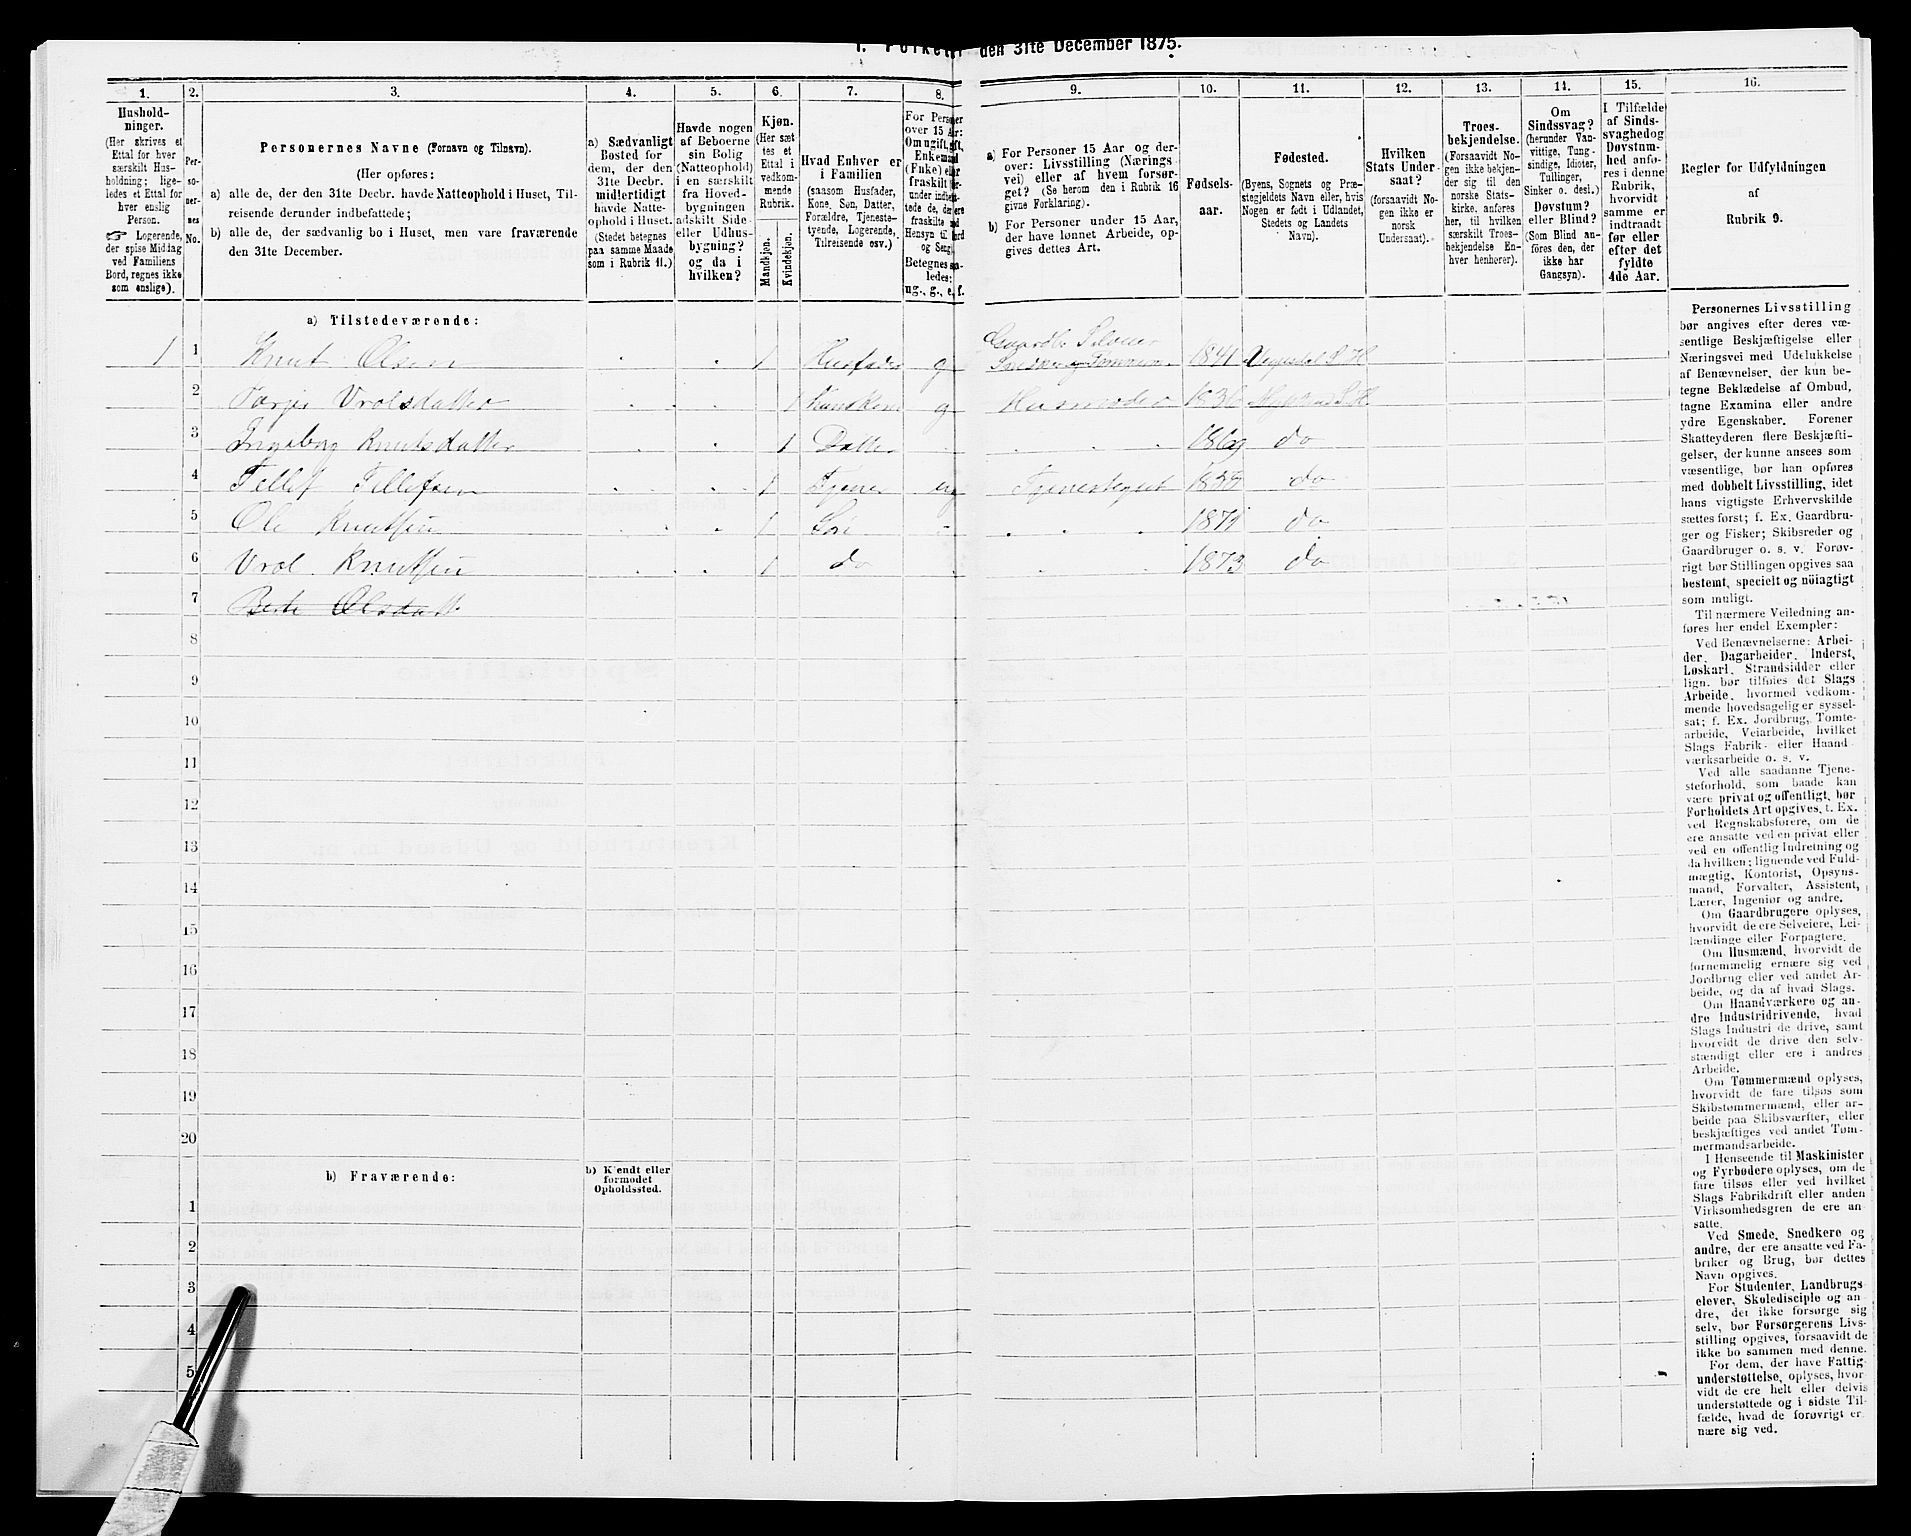 den 31te December 1875.
1. 2. 3. 4. 5. 6. 7. 8. 9. 10. 11. 12. 13. 14. 15. 16.
Hushold-
ninger.
(Her skrives et
Ettal for hver
særskilt Hus-
holdning; lige-
ledes et Ettal for
hver enslig
Person.
☞ Logerende,
der spise Middag
ved Familiens
Bord, regnes ikke
som enslige).
Per-
so-
ner-
nes
No.
Personernes Navne (Fornavn og Tilnavn).
(Her opføres:
a) alle de, der den 31te Decbr. havde Natteophold i Huset, Til-
reisende derunder indbefattede;
b) alle de, der sædvanlig bo i Huset, men vare fraværende
den 31te December.
a) Sædvanligt
Bosted for
dem, der den
31te Decbr.
midlertidigt
havde Natte-
ophold i Huset.
(Stedet betegnes
paa samme Maade
som i Rubrik 11.)
Havde nogen
af Beboerne
sin Bolig
(Natteophold)
i en særskilt
fra Hoved-
bygningen
adskilt Side-
eller Udhus-
bygning?
og da i
hvilken?
Kjøn.
(Her sæt-
tes et
Ettal i
vedkom-
mende
Rubrik.
Mandkjøn.
Kvindekjøn.
Hvad Enhver er
i Familien
(saasom Husfader,
Kone, Søn, Datter,
Forældre, Tjeneste-
tyende, Logerende,
Tilreisende osv.)
For Personer
over 15 Aar:
Om ugift, gift,
Enkemand
(Enke) eller
fraskilt
Hensyn til
og Seng
Betegnes saa-
ledes:
ug., g., e, f.
a) For Personer 15 Aar og der-
over: Livsstilling (Nærings-
vei) eller af hvem forsør-
get? (Se herom den i Rubrik 16
givne Forklaring).
b) For Personer under 15 Aar,
der have lønnet Arbeide, op-
gives dettes Art.
Fødsels-
aar.
Fødested.
(Byens, Sognets og Præ-
stegjeldets Navn eller, hvis
Nogen er født i Udlandet,
Stedets og Landets
Navn).
Hvilken
Stats Under-
saat?
(forsaavidt No-
gen ikke er
norsk
Undersaat).
Troes-
bekjendelse.
(Forsaavidt No-
gen ikke bekjen-
der sig til den
norske Stats-
kirke, anføres
her, til hvilken
særskilt Troes-
bekjendelse En-
hver henhører).
Om
Sindssvag?
(herunder Van-
vittige, Tung-
sindige, Idioter,
Tullinger,
Sinker o. desl.)
Døvstum?
eller Blind?
(Som Blind an-
føres den, der
ikke har
Gangsyn).
I Tilfælde
af Sinds-
svaghed og
Døvstum-
hed anfø-
res i denne
Rubrik,
hvorvidt
samme er
indtraadt
før eller
efter det
fyldte
4de Aar.
Regler for Udfyldningen
af
Rubrik 9.
a) Tilstedeværende:
1 1 Knut Olsen 1 Husfader g Gaardbr Selveier
1841
2 Vrolsdatter 1 g Husmoder
3 Ingeborg Knutsdatter 1 Datter 1869 do
4 Tellef Tellefsen 1 Tjener ug do
5 Ole Knutsen 1 1871 do
6 Vrol Knutsen 1 do 1873 do
7 Olsdatt
8
9
10
11
12
13
14
15
16
17
18
19
20
b) Fraværende:
b) Kjendt eller
formodet
Opholdssted.
1
2
3
4
5
Personernes Livsstilling
bør angives efter deres væ-
sentlige Beskjæftigelse eller
Næringsvei med Udelukkelse
af Benævnelser, der kun be-
tegne Beklædelse af Ombud,
tagne Examina eller andre
ydre Egenskaber. Forener
Skatteyderen flere Beskjæfti-
gelser, der kunne ansees som
væsentlige, bør han opføres
med dobbelt Livsstilling, idet
hans vigtigste Erhvervskilde
sættes først; f. Ex. Gaardbru-
ger og Fisker; Skibsreder og
Gaardbruger o. s. v. Forøv-
rigt bør Stillingen opgives saa
bestemt, specielt og nöiagtigt
som muligt.
Til nærmere Veiledning an-
føres her endel Exempler:
Ved Benævnelserne: Arbei-
der, Dagarbeider, Inderst,
Løskarl, Strandsidder eller
lign. bør tilføies det Slags
Arbeide, hvormed vedkom-
mende hovedsagelig er syssel-
sat; f. Ex. Jordbrug, Tomte-
arbeide, Veiarbeide, hvilket
Slags Fabrik- eller Haand-
værksarbeide o. s. v.
Ved alle saadanne Tjene-
steforhold, som baade kan
være privat og offentligt, bør
Forholdets Art opgives, t. Ex.
ved Regnskabsførere, om de
ere ansatte ved en privat eller
ved en offentlig Indretning og
da hvilken; lignende ved Fuld-
mægtig, Kontorist, Opsyns-
mand, Forvalter, Assistent,
Lærer, Ingeniør og andre.
Om Gaardbrugere oplyses,
hvorvidt de ere Selveiere, Lei-
lændinge eller Forpagtere.
Om Husmænd, hvorvidt de
fornemmelig ernære sig ved
Jordbrug eller ved andet Ar-
beide, og da af hvad Slags.
Om Haandværkere og an-
dre Industridrivende, hvad
Slags Industri de drive, samt
hvorvidt de drive den selv-
stændigt eller ere i andres
Arbeide.
Om Tømmermænd oplyses,
hvorvidt de fare tilsøs som
Skibstømmermænd, eller ar-
beide paa Skibsværfter, eller
beskjæftiges ved andet Tøm-
mermandsarbeide.
I Henseende til Maskinister
og Fyrbødere oplyses, om de
fare tilsøs eller ved hvilket
Slags Fabrikdrift eller anden
Virksomhedsgren de ere an-
satte.
Ved Smede, Snedkere og
andre, der ere ansatte ved Fa-
briker og Brug, bør dettes
Navn opgives.
For Studenter, Landbrugs-
elever, Skoledisciple og an-
dre, der ikke forsørge sig
selv, bør Forsorgerens Livs-
stilling opgives, forsaavidt de
ikke bo sammen med denne.
For dem, der have Fattig-
understøttelse, oplyses, hvor-
vidt de ere helt eller delvis
understøttede og i sidste Til-
fælde, hvad de forøvrigt er-
nære sig ved.